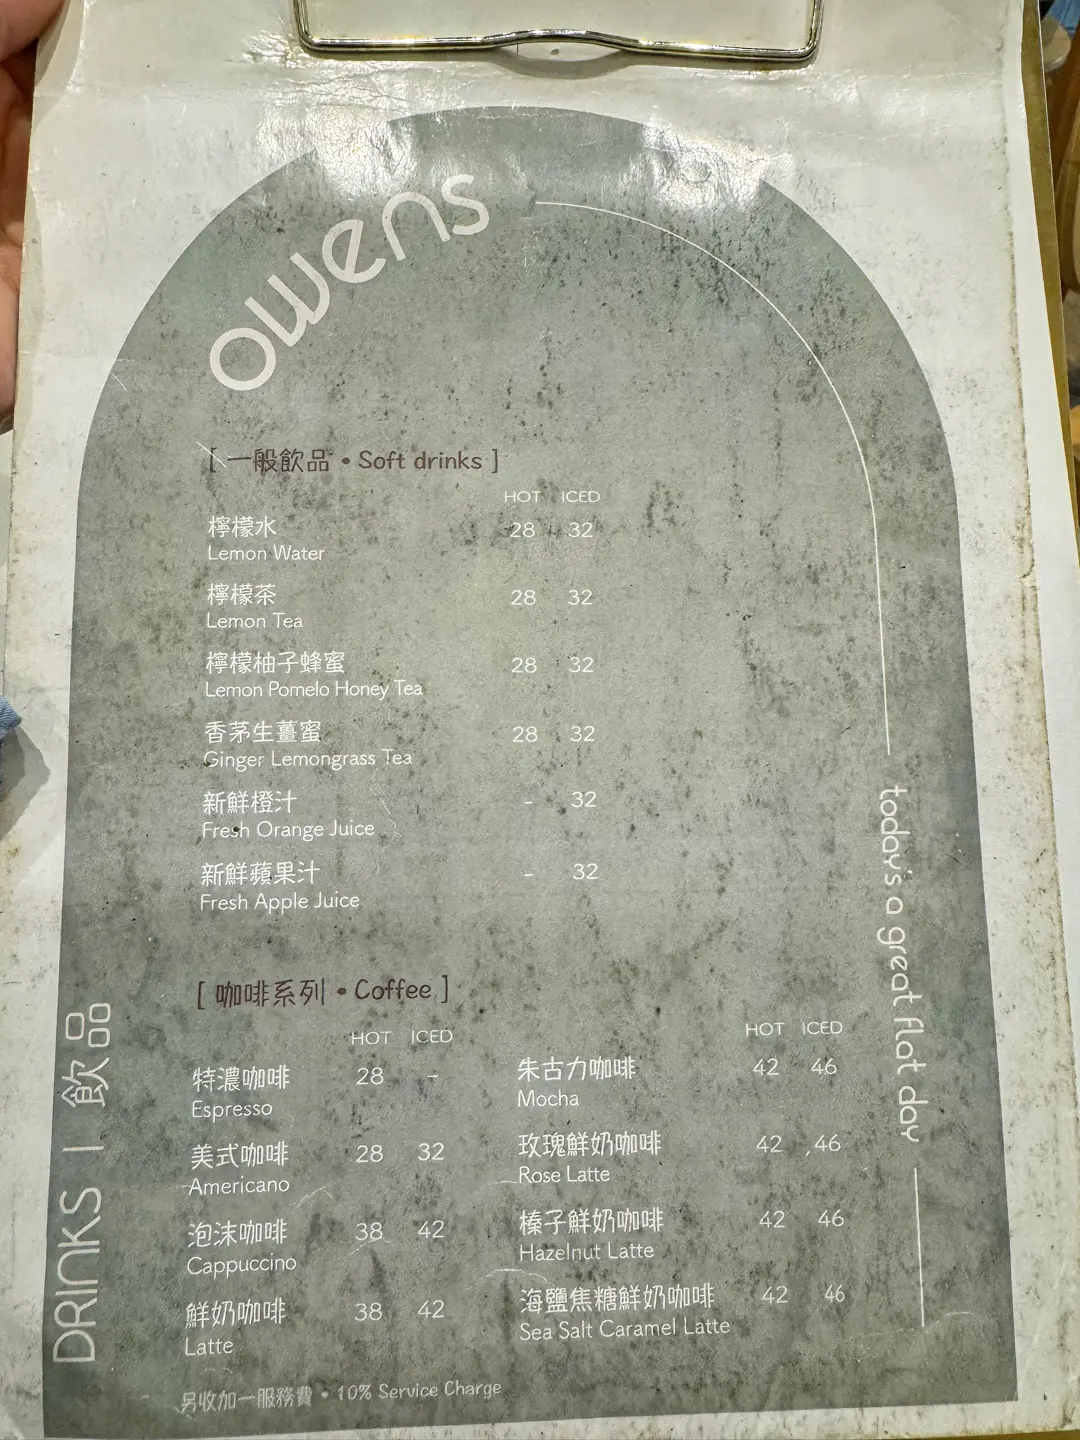 owens
[ 一般飲品 • Soft drinks ]
HOT ICED
檸檬水 28 32
Lemon Water
檸檬茶 28 32
Lemon Tea
檸檬柚子蜂蜜 28 32
Lemon Pomelo Honey Tea
香茅生薑蜜 28 32
Ginger Lemongrass Tea
新鮮橙汁 - 32
Fresh Orange Juice
新鮮蘋果汁 - 32
Fresh Apple Juice
[ 咖啡系列 • Coffee ]
HOT ICED
特濃咖啡 28 -
Espresso
美式咖啡 28 32
Americano
泡沫咖啡 38 42
Cappuccino
鮮奶咖啡 38 42
Latte
HOT ICED
朱古力咖啡 42 46
Mocha
玫瑰鮮奶咖啡 42 46
Rose Latte
榛子鮮奶咖啡 42 46
Hazelnut Latte
海鹽焦糖鮮奶咖啡 42 46
Sea Salt Caramel Latte
另收加一服務費 • 10% Service Charge
DRINKS | 飲品
today's a great flat day